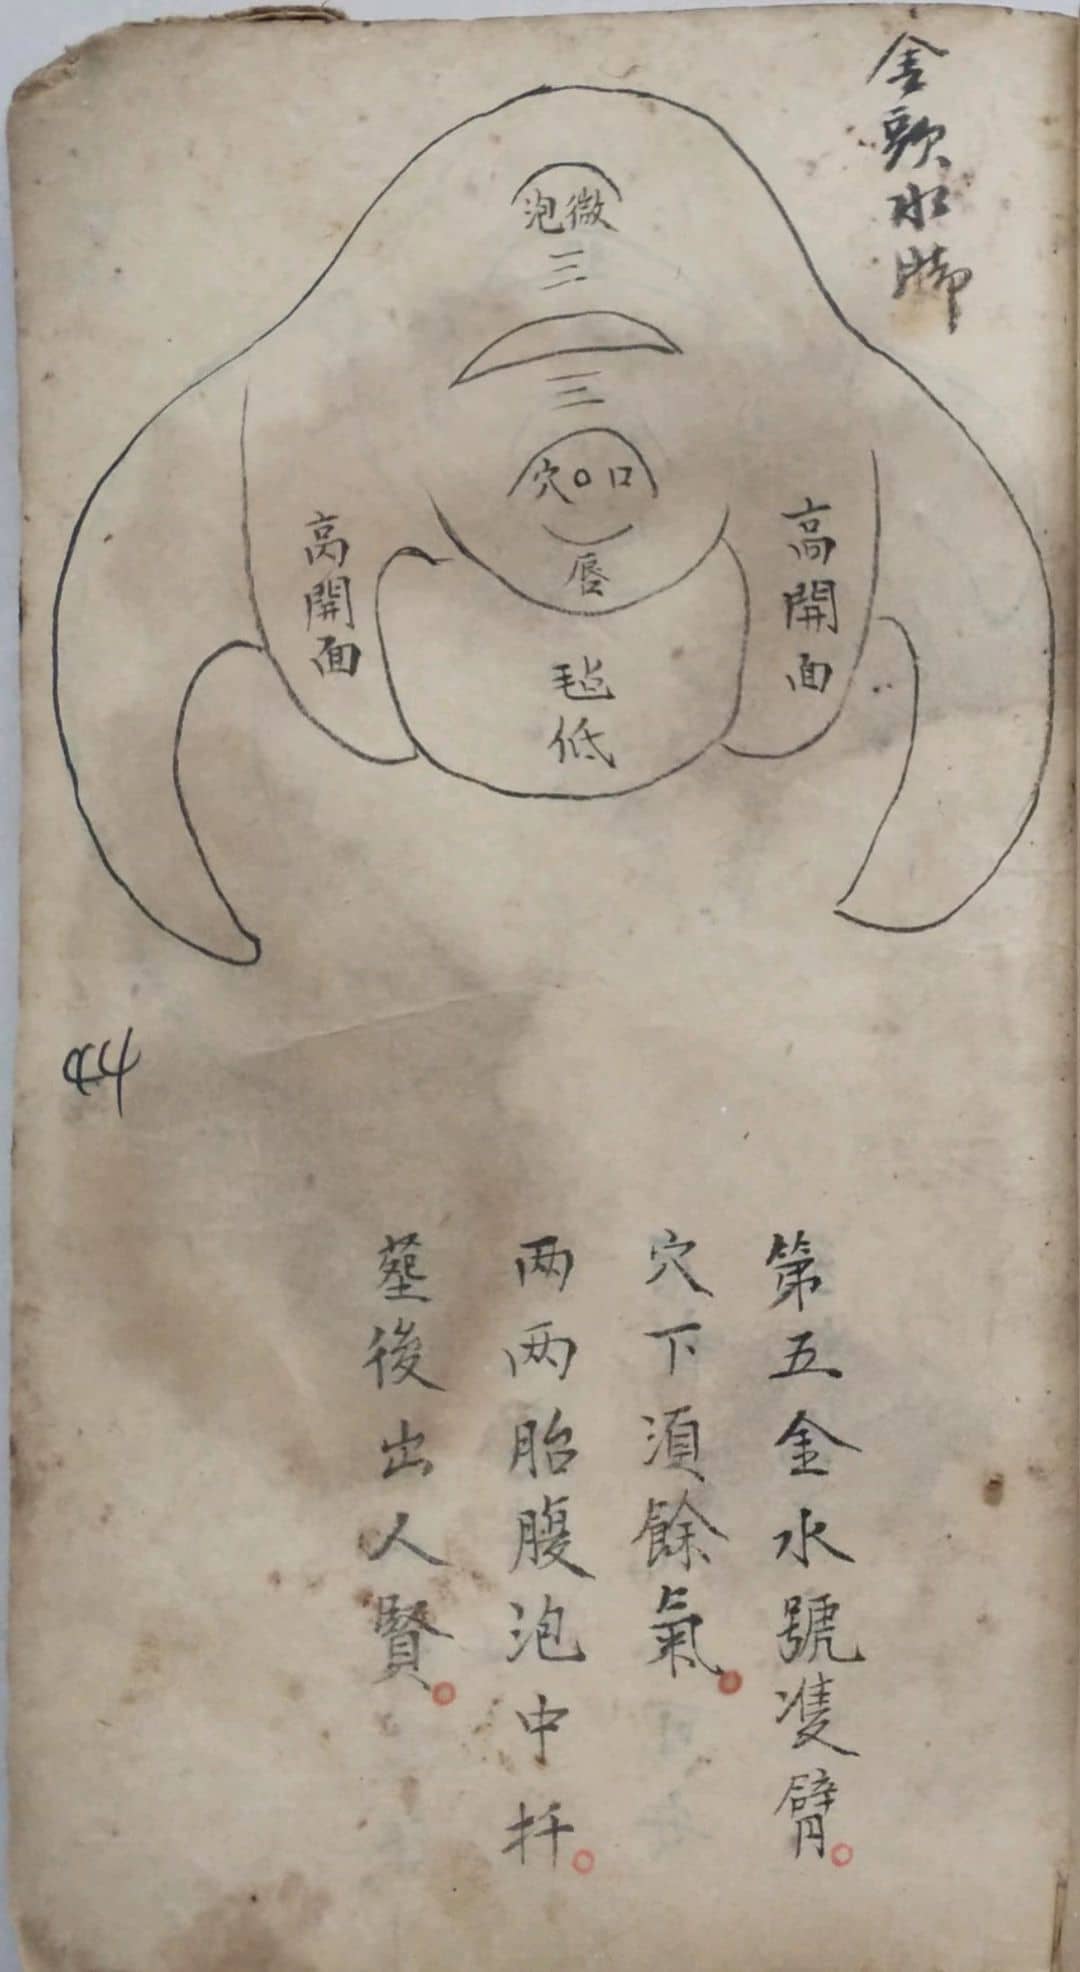 金頭水脚
微泡
三
三
口○穴
唇
高開面
高開面
毡低
44
第五金水號隻臂○
穴下須餘氣○
两两胎腹泡中扦○
塟後出人賢○